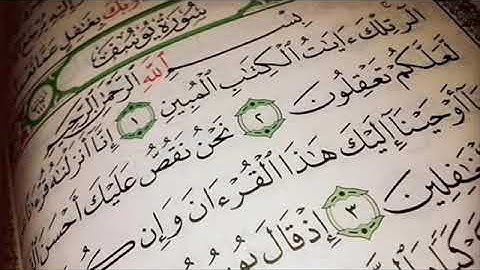 رَبُّكَ بِغَٰفِلٍ عَمَّا
سُورَةُ يُوسُفَ
بِسْمِ اللَّهِ الرَّحْمَٰنِ الرَّحِيمِ
الٓر تِلْكَ ءَايَٰتُ الْكِتَٰبِ الْمُبِينِ ١ إِنَّا أَنزَلْنَٰهُ
لَّعَلَّكُمْ تَعْقِلُونَ ٢ نَحْنُ نَقُصُّ عَلَيْكَ أَحْسَنَ
أَوْحَيْنَا إِلَيْكَ هَٰذَا الْقُرْءَانَ وَإِن
الْغَٰفِلِينَ ٣ إِذْ قَالَ